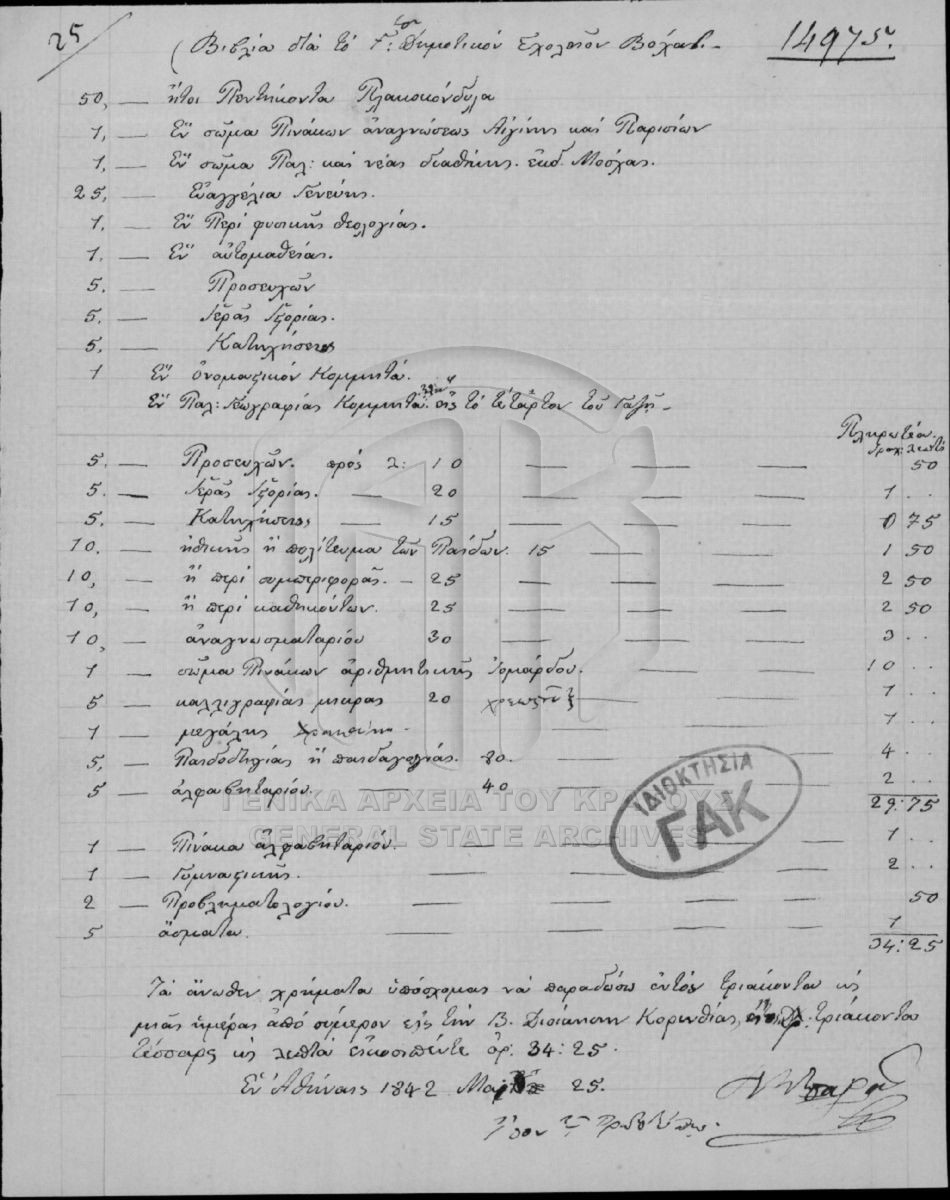 25
14975.
Βιβλία διὰ τὸ Δημοτικὸν Σχολεῖον
50, — ἤτοι Πεντήκοντα Πλακοκόνδυλα
1, — Ἓν σῶμα Πινάκων ἀναγνώσεως Αἰγίνης καὶ Παρισίων
1, — Ἓν σῶμα Παλ: καὶ νέας διαθήκης. ἐκδ. Μόσχας.
25, — Εὐαγγέλια Γενεύης.
1. — Ἓν Περὶ φυσικῆς θεολογίας.
1. — Ἓν αὐτομαθείας.
5. — Προσευχῶν
5. — Ἱερᾶς Ἱστορίας.
5. — Κατηχήσεως
1 Ἓν ὀνομαστικὸν Κομμητᾶ.
Ἓν Παλ: Γεωγραφίας Κομμητᾶ. εἰς τὸ τέταρτον τοῦ Γαζῆ —
Πληρωτέα.
δραχ: λεπτὰ
5. — Προσευχῶν. πρὸς λ: 10 — — — 50
5. — Ἱερᾶς Ἱστορίας. — 20 — — — 1 . .
5. — Κατηχήσεως — 15 — — — 0 75
10. — ἠθικῆς ἢ πολίτευμα τῶν Παίδων. 15 — — — 1 50
10, — ἢ περὶ συμπεριφορᾶς. — 25 — — — 2 50
10, — ἢ περὶ καθηκόντων. 25 — — — 2 50
10, — ἀναγνωσματαρίου 30 — — — 3 . .
1 — σῶμα Πινάκων ἀριθμητικῆς — — 10 . .
5 — καλλιγραφίας μικρᾶς 20 — — 1 . .
1 — μεγάλης — — — 1 . .
5, — Παιδοδηγίας ἢ παιδαγωγίας. 80. — — — 4 . .
5 — ἀλφαβηταρίου. 40 — — 2 . .
29:75
1 — Πίνακα ἀλφαβηταρίου. — — — 1 . .
1 — Γυμναστικῆς. — — — 2 . .
2 — Προβληματολογίου. — — — 50
5 ᾄσματα. — — — 1
34:25
Τὰ ἄνωθεν χρήματα ὑπόσχομαι νὰ παραδώσω ἐντὸς τριάκοντα κ̀
μιᾶς ἡμέρας ἀπὸ σήμερον εἰς τὴν Β. Διοίκησιν Κορινθίας, τριάκοντα
τέσσαρας κ̀ λεπτὰ εἰκοσιπέντε ἀρ: 34:25.
Ἐν Ἀθήναις 1842 25.
ΓΕΝΙΚΑ ΑΡΧΕΙΑ ΤΟΥ ΚΡΑΤΟΥΣ
GENERAL STATE ARCHIVES
ΙΔΙΟΚΤΗΣΙΑ
ΓΑΚ